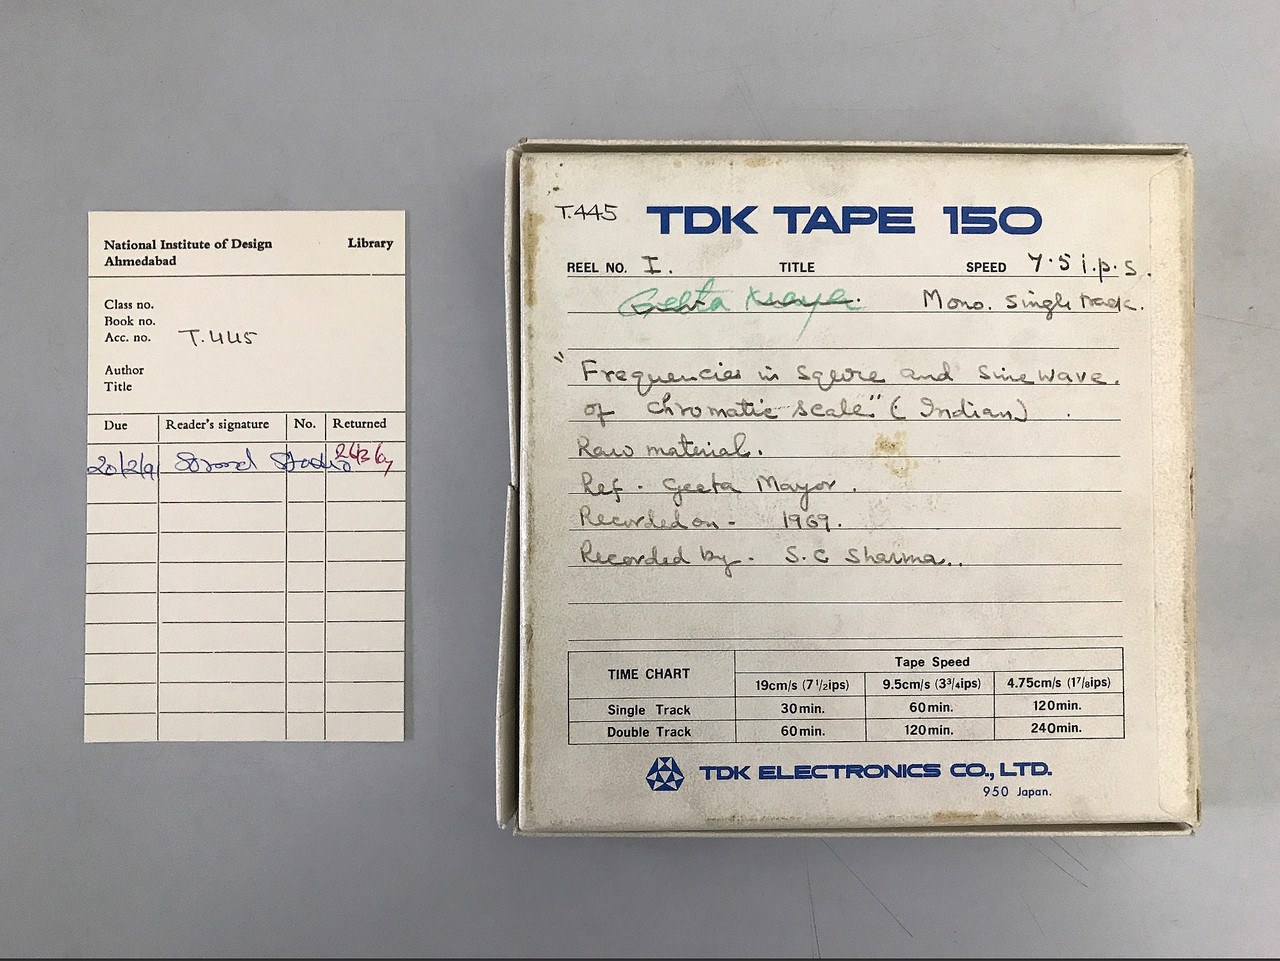 National Institute of Design Library
Ahmedabad
Class no.
Book no.
Acc. no. T.445
Author
Title
Due Reader's signature No. Returned
20/2/91 Sound Studio
T.445 TDK TAPE 150
REEL NO. I. TITLE SPEED 7.5 i.p.s.
Geeta Mono. Single track.
"Frequencies in Sqevre and Sine wave.
of chromatic scale" (Indian) .
Raw material.
Ref - Geeta Mayor.
Recorded on - 1969.
Recorded by - S.C Sharma..
TIME CHART Tape Speed
19cm/s (7 1/2ips) 9.5cm/s (3 3/4ips) 4.75cm/s (1 7/8ips)
Single Track 30min. 60min. 120min.
Double Track 60min. 120min. 240min.
TDK ELECTRONICS CO., LTD.
950 Japan.